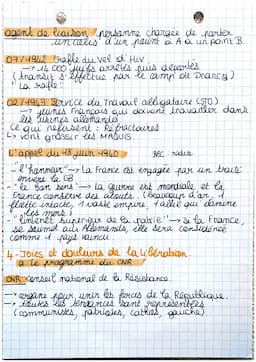 agent de liaison : personne chargée de porter
un colis d'un point A à un point B.
07/1942 : Rafle du Vel d'Hiv
→ 14 000 juifs arrêtés puis déportés
(transit s'effectue par le camp de Drancy)
"La rafle"
02/1943 Service du Travail obligatoire (STO)
→ jeunes Français qui doivent travailler dans
les usines allemandes
Ce qui refusent : Réfractaires
↳ vont grossir les MAQUIS.
L'appel du 18 juin 1940 BBC radio
- "l'honneur" → La France est engagée par un traité
envers la GB
- "le bon sens" → la guerre est mondiale et la
France conserve des atouts : (beaucoup d'or, 1
flotte intacte, 1 vaste empire, l'allié qui domine
les mers)
- "L'intérêt supérieur de la patrie" → si la France
se soumet aux Allemands, elle sera considérée
comme 1 pays vaincu
4 - Joies et douleurs de la Libération.
a le programme du CNR
CNR : Conseil national de la Résistance.
→ organe pour unir les forces de la République.
→ toutes les tendances sont représentées
(communistes, patriotes, cathos, gauche)